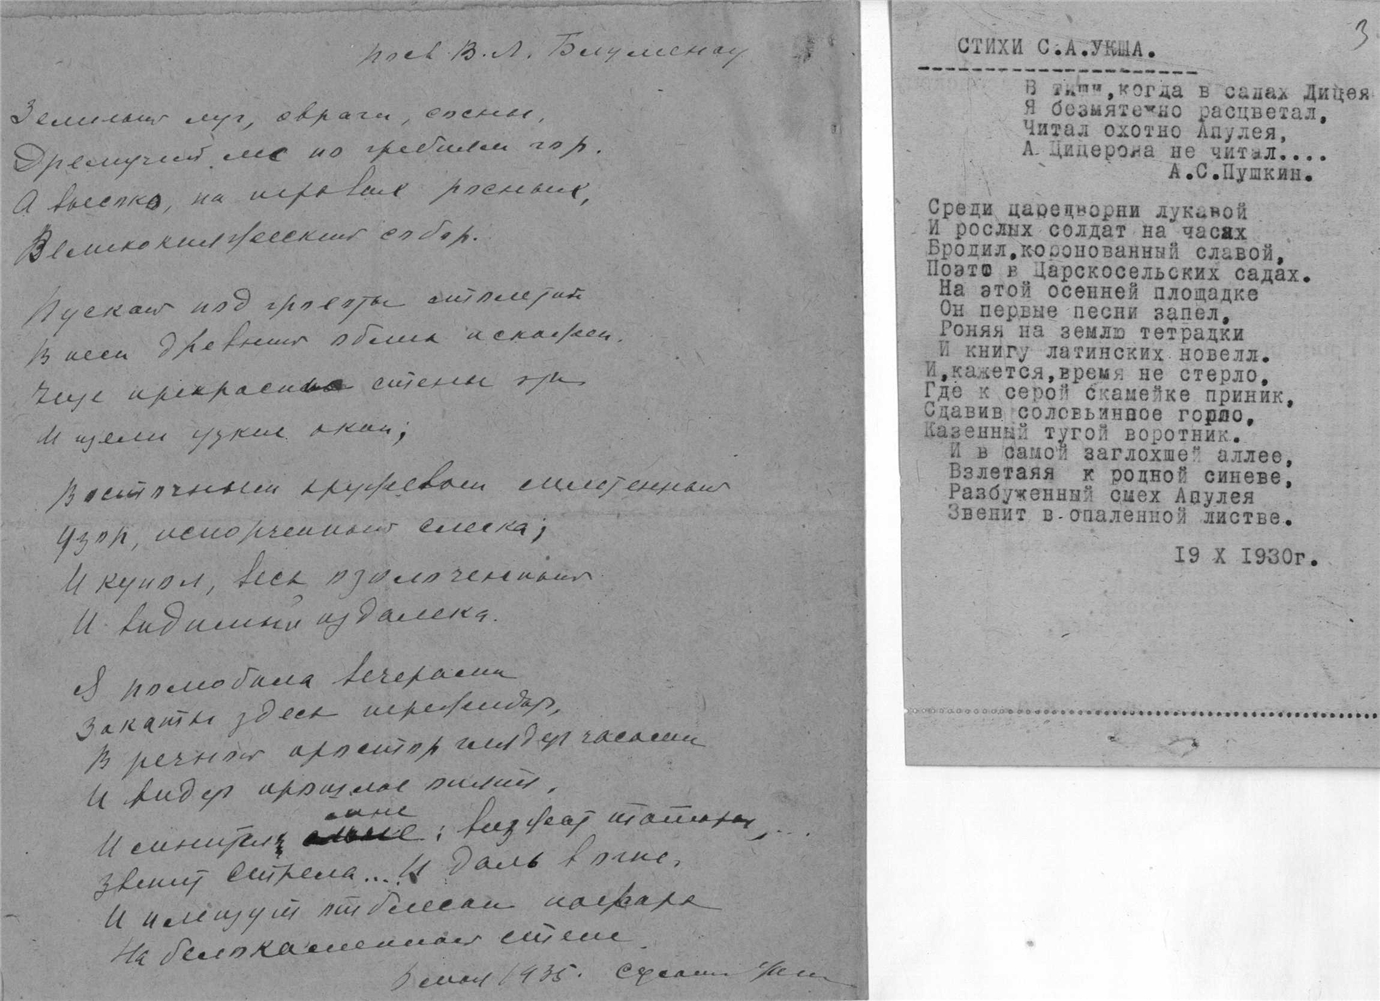 посв В. Л. Блуменау
Зеленый луг, овраги, сосны,
Дремучий лес по гребням гор.
А высоко, на
Великокняжеский собор.
Пускай под гроты столетий
В нем древний облик искажен.
Еще прекрасны стены эти
И щели узкие окон;
Восточным кружевом сплетенный
Узор, испорченный слегка;
И купол, весь озолоченный
И видимый издалека.
Я полюбила вечерами
Закаты здесь пережидать,
В речной простор глядеть часами
И видеть прошлое опять.
И снится мне: визжат татары,...
Звенит стрела... И даль в огне,
И пляшут отблески пожара
На белокаменной стене.
мая 1935. Сусанна Укше
3
СТИХИ С.А.УКША.
В тиши,когда в садах Лицея
Я безмятежно расцветал,
Читал охотно Апулея,
А Цицерона не читал....
А.С.Пушкин.
Среди царедворни лукавой
И рослых солдат на часах
Бродил,коронованный славой,
Поэтс в Царскосельских садах.
На этой осенней площадке
Он первые песни запел,
Роняя на землю тетрадки
И книгу латинских новелл.
И,кажется,время не стерло,
Где к серой скамейке приник,
Сдавив соловьинное горло,
Казенный тугой воротник.
И в самой заглохшей аллее,
Взлетаяя к родной синеве,
Разбуженный смех Апулея
Звенит в опаленной листве.
19 X 1930г.